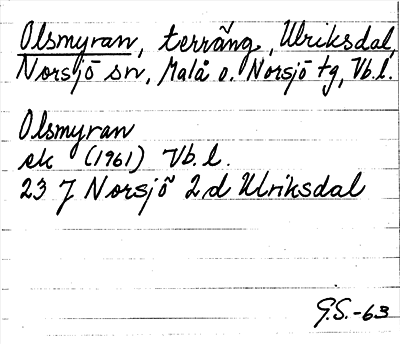 Olsmyran, terräng, Ulriksdal,
Norsjö sn, Malå o. Norsjö tg, Vb.l.
Olsmyran
ek (1961) Vb.l.
23 J Norsjö 2 d Ulriksdal
G.S.-63